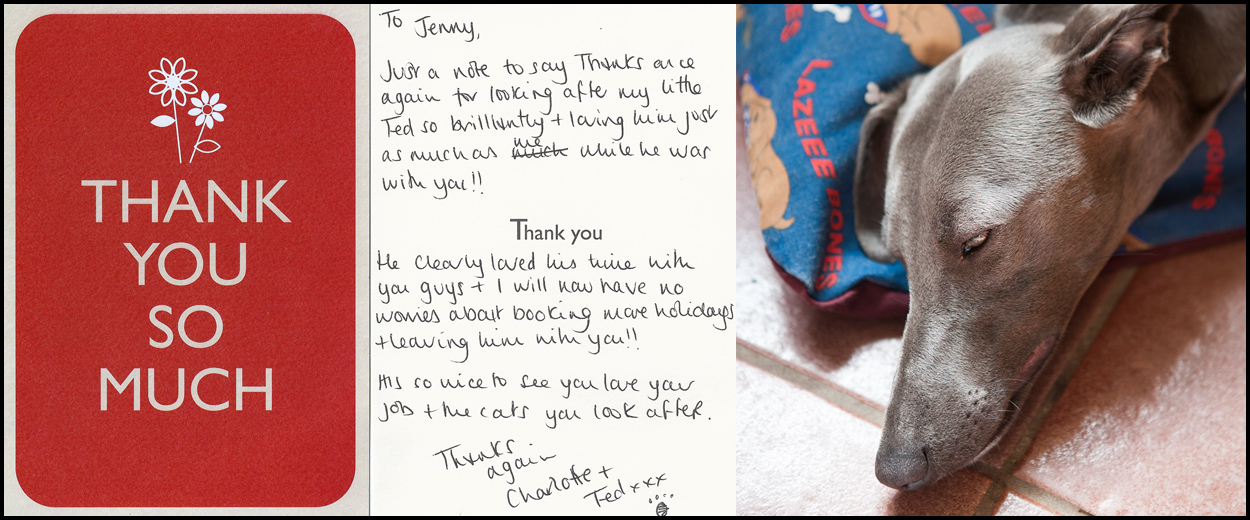 THANK
YOU
SO
MUCH
To Jenny,
Just a note to say Thanks once
again for looking after my little
Ted so brilliantly + loving him just
as much as me while he was
with you!!
Thank you
He clearly loved his time with
you guys + I will now have no
worries about booking more holidays
+ leaving him with you!!
It's so nice to see you love your
job + the cats you look after.
Thanks
again
Charlotte +
Ted xxx
LAZEEE BONES
BONES